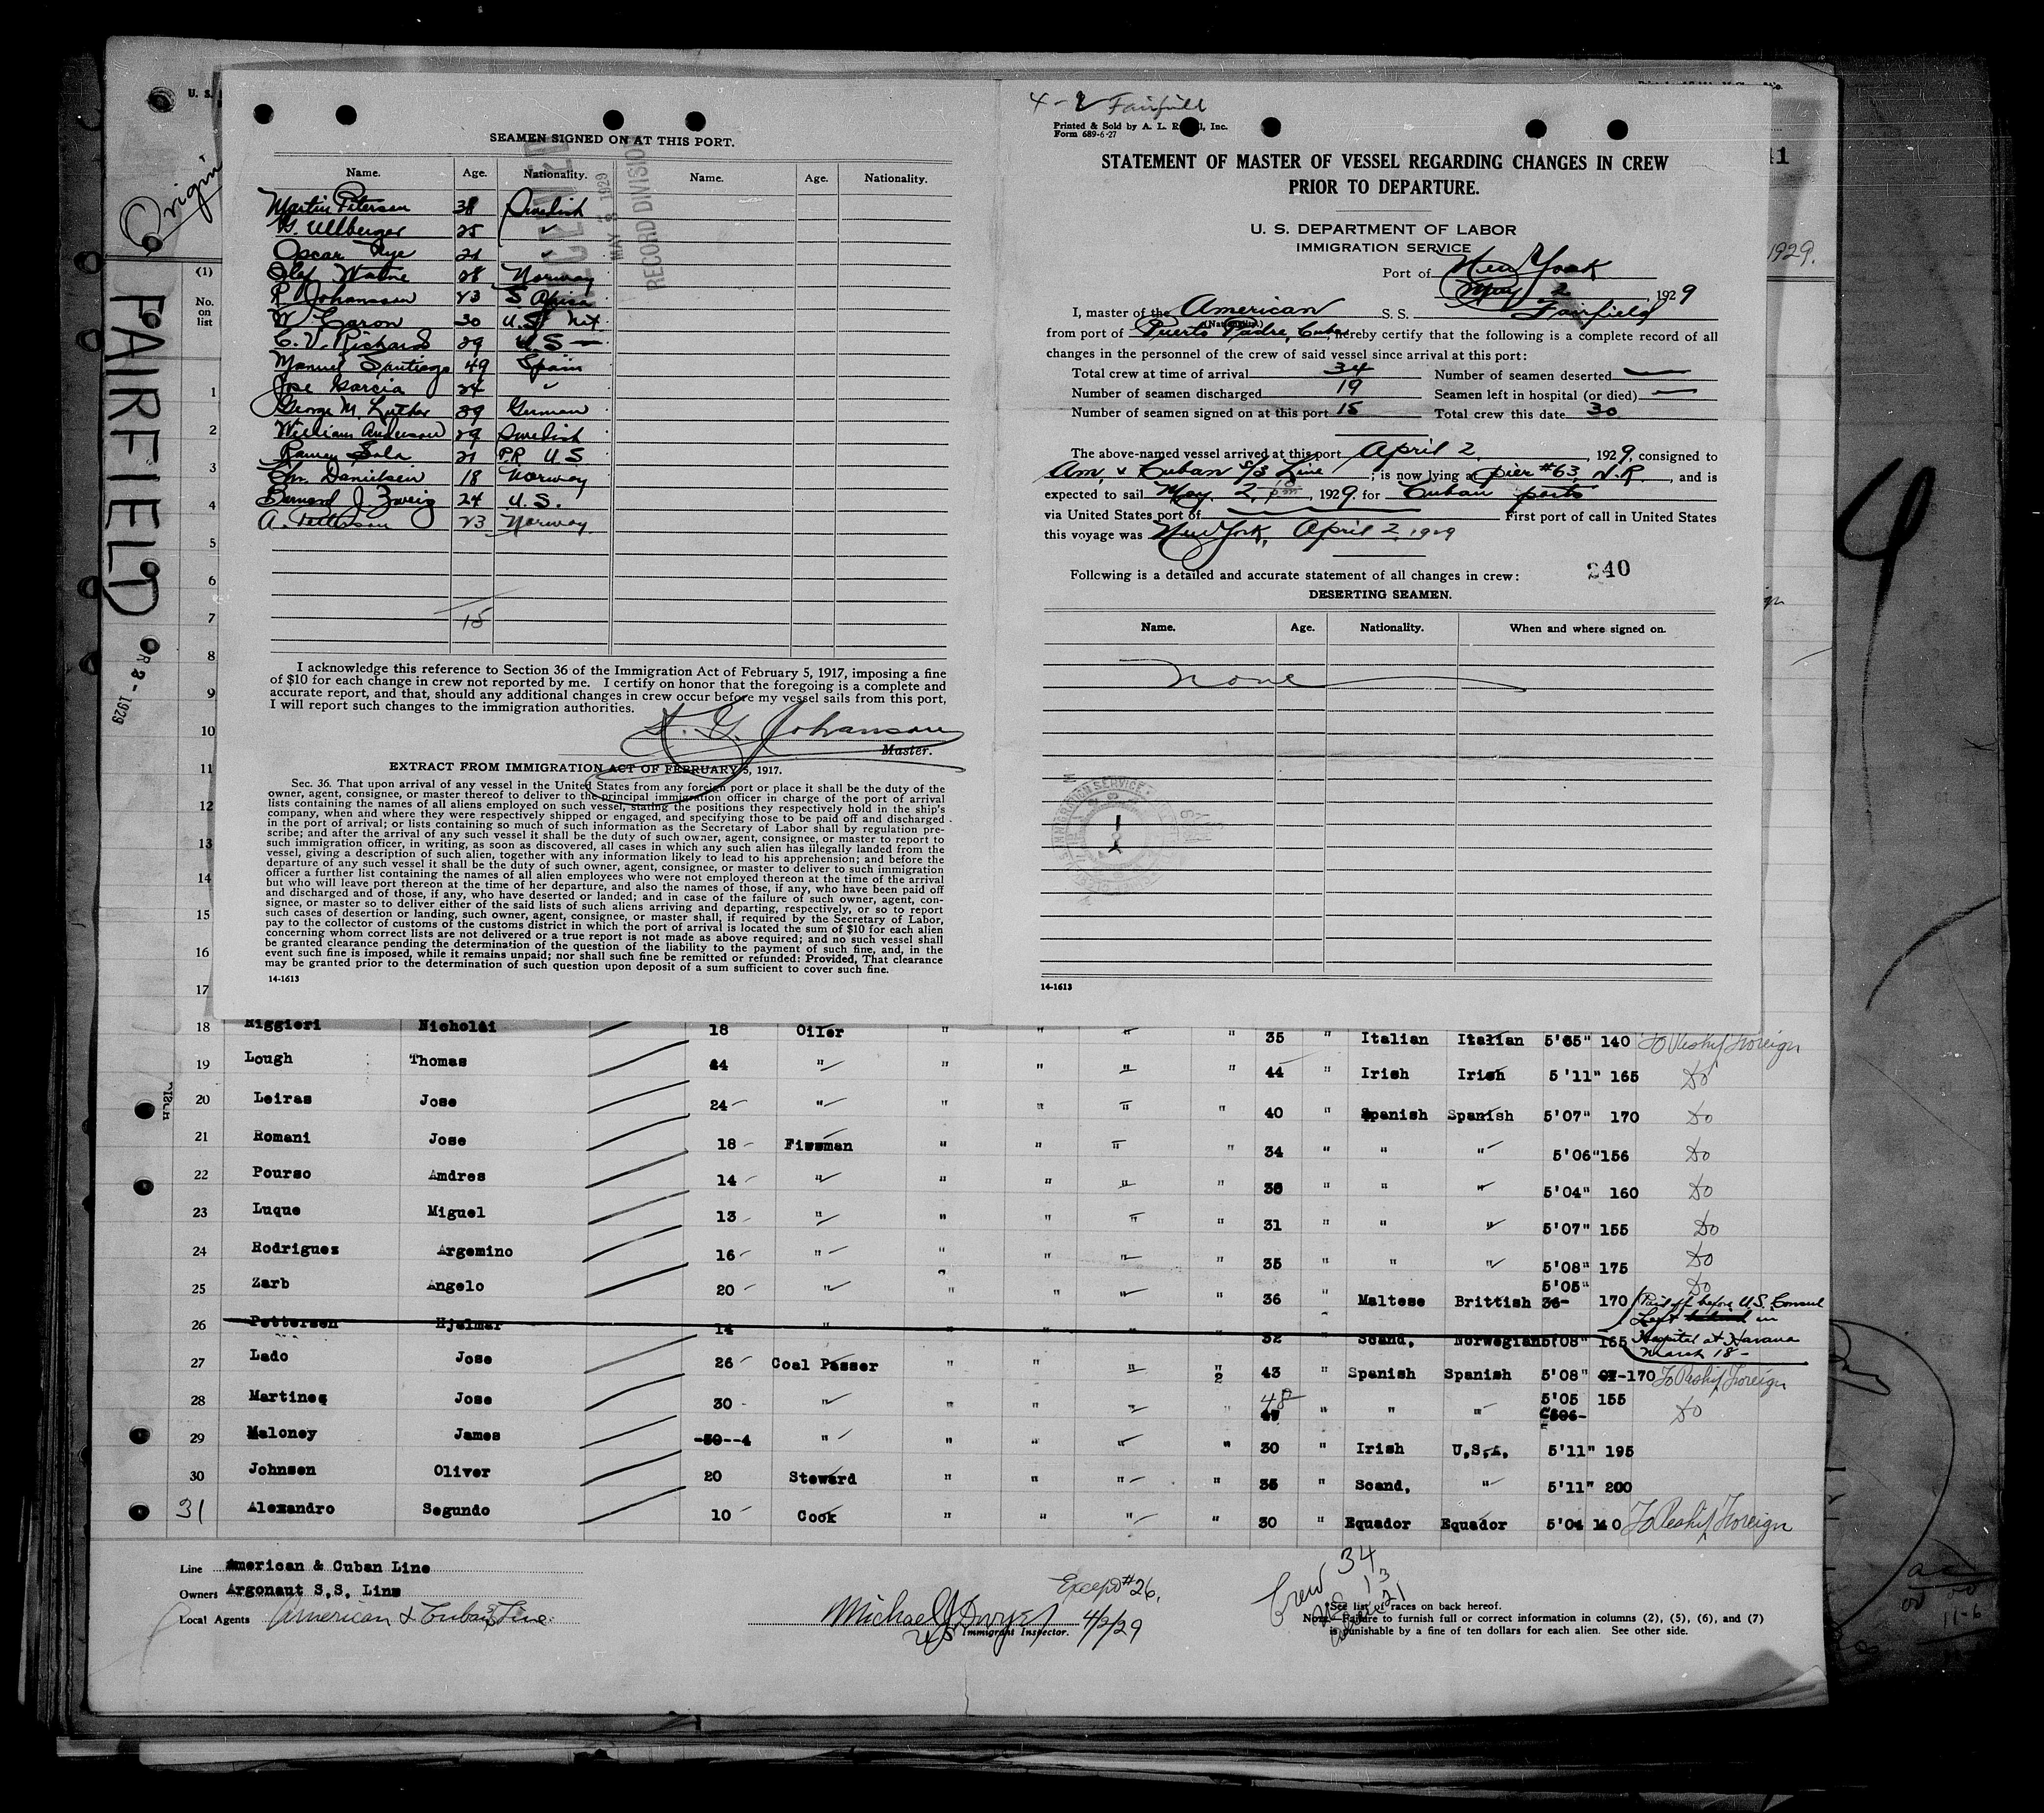 SEAMEN SIGNED ON AT THIS PORT.
Name. Age. Nationality. Name. Age. Nationality.
Martin Petersen 38 Swedish
G. Ullberger 25 "
Oscar Nye 21 "
Olef Watne 28 Norway
R Johansson 23 S Africa
W Caron 30 U.S. Nat.
C. V. Richards 29 U S
Manuel Santiago 49 Spain
Jose Garcia 24 "
George M. Luther 39 German
William Anderson 29 Swedish
Ramon Sala 21 P.R U S
Chr. Danielsen 18 Norway
Bernard J. Zweig 24 U.S.
A. Petterson 23 Norway.
15
RECEIVED
MAY 3 1929
RECORD DIVISION
I acknowledge this reference to Section 36 of the Immigration Act of February 5, 1917, imposing a fine
of $10 for each change in crew not reported by me. I certify on honor that the foregoing is a complete and
accurate report, and that, should any additional changes in crew occur before my vessel sails from this port,
I will report such changes to the immigration authorities.
Johanson
Master.
EXTRACT FROM IMMIGRATION ACT OF FEBRUARY 5, 1917.
Sec. 36. That upon arrival of any vessel in the United States from any foreign port or place it shall be the duty of the
owner, agent, consignee, or master thereof to deliver to the principal immigration officer in charge of the port of arrival
lists containing the names of all aliens employed on such vessel, stating the positions they respectively hold in the ship's
company, when and where they were respectively shipped or engaged, and specifying those to be paid off and discharged
in the port of arrival; or lists containing so much of such information as the Secretary of Labor shall by regulation pre-
scribe; and after the arrival of any such vessel it shall be the duty of such owner, agent, consignee, or master to report to
such immigration officer, in writing, as soon as discovered, all cases in which any such alien has illegally landed from the
vessel, giving a description of such alien, together with any information likely to lead to his apprehension; and before the
departure of any such vessel it shall be the duty of such owner, agent, consignee, or master to deliver to such immigration
officer a further list containing the names of all alien employees who were not employed thereon at the time of the arrival
but who will leave port thereon at the time of her departure, and also the names of those, if any, who have been paid off
and discharged and of those, if any, who have deserted or landed; and in case of the failure of such owner, agent, con-
signee, or master so to deliver either of the said lists of such aliens arriving and departing, respectively, or so to report
such cases of desertion or landing, such owner, agent, consignee, or master shall, if required by the Secretary of Labor,
pay to the collector of customs of the customs district in which the port of arrival is located the sum of $10 for each alien
concerning whom correct lists are not delivered or a true report is not made as above required; and no such vessel shall
be granted clearance pending the determination of the question of the liability to the payment of such fine, and, in the
event such fine is imposed, while it remains unpaid; nor shall such fine be remitted or refunded: Provided, That clearance
may be granted prior to the determination of such question upon deposit of a sum sufficient to cover such fine.
14-1613
4-2 Fairfield
Printed & Sold by A. L. Inc.
Form 689-6-27
STATEMENT OF MASTER OF VESSEL REGARDING CHANGES IN CREW
PRIOR TO DEPARTURE.
U. S. DEPARTMENT OF LABOR
IMMIGRATION SERVICE
Port of New York
May 2, 1929
I, master of the American S. S. Fairfield
(Nationality)
from port of Puerto Padre, Cuba, hereby certify that the following is a complete record of all
changes in the personnel of the crew of said vessel since arrival at this port:
Total crew at time of arrival 34 Number of seamen deserted —
Number of seamen discharged 19 Seamen left in hospital (or died) —
Number of seamen signed on at this port 15 Total crew this date 30
The above-named vessel arrived at this port April 2, 1929, consigned to
Am. & Cuban S/S Line; is now lying at pier #63, N.R., and is
expected to sail May 2, pm, 1929 for Cuban ports
via United States port of — First port of call in United States
this voyage was New York, April 2, 1929
Following is a detailed and accurate statement of all changes in crew: 240
DESERTING SEAMEN.
Name. Age. Nationality. When and where signed on.
None
IMMIGRATION SERVICE
14-1613
U. S.
Origin
11
1929.
FAIRFIELD
R 2 - 1929
(1)
No.
on
list
1
2
3
4
5
6
7
8
9
10
11
12
13
14
15
16
17
18 Riggieri Nicholai 18 Oiler " " " " 35 " Italian Italian 5'65" 140 To Reship Foreign
19 Lough Thomas 44 " " " " " 44 " Irish Irish 5'11" 165 Do
20 Leiras Jose 24 " " " " " 40 " Spanish Spanish 5'07" 170 Do
21 Romani Jose 18 Fissman " " " " 34 " " " 5'06" 156 Do
22 Pourso Amdres 14 " " " " " 38 " " " 5'04" 160 Do
23 Luque Miguel 13 " " " " " 31 " " " 5'07" 155 Do
24 Rodrigues Argemino 16 " " " " " 35 " " " 5'08" 175 Do
25 Zarb Angelo 20 " " " " " 36 Maltese Brittish 5'05" 36- 170 Do
26 Pettersen Hjalmar 14 " " " " " 32 " Scand, Norwegian 5'08" 165 Paid off before U.S. Consul
Left behind in
Hospital at Havana
March 18-
27 Lado Jose 26 Coal Passer " " " " 2 43 " Spanish Spanish 5'08" 170 To Reship Foreign
28 Martines Jose 30 " " " " " 48 " " " 5'05 155 Do
29 Maloney James -30--4 " " " " " 30 " Irish U.S.A. 5'11" 195
30 Johnsen Oliver 20 Steward " " " " 35 " Scand, " 5'11" 200
31 Alexandro Segundo 10 Cook " " " " 30 " Equador Equador 5'04 140 To Reship Foreign
Line American & Cuban Line
Owners Argonaut S.S. Line
Local Agents American & Cuban Line
Except #26.
Michael J Dwyer 4/2/29
Immigrant Inspector.
Crew 34
13
21
*See list of races on back hereof.
Note.—Failure to furnish full or correct information in columns (2), (5), (6), and (7)
is punishable by a fine of ten dollars for each alien. See other side.
4
11-6